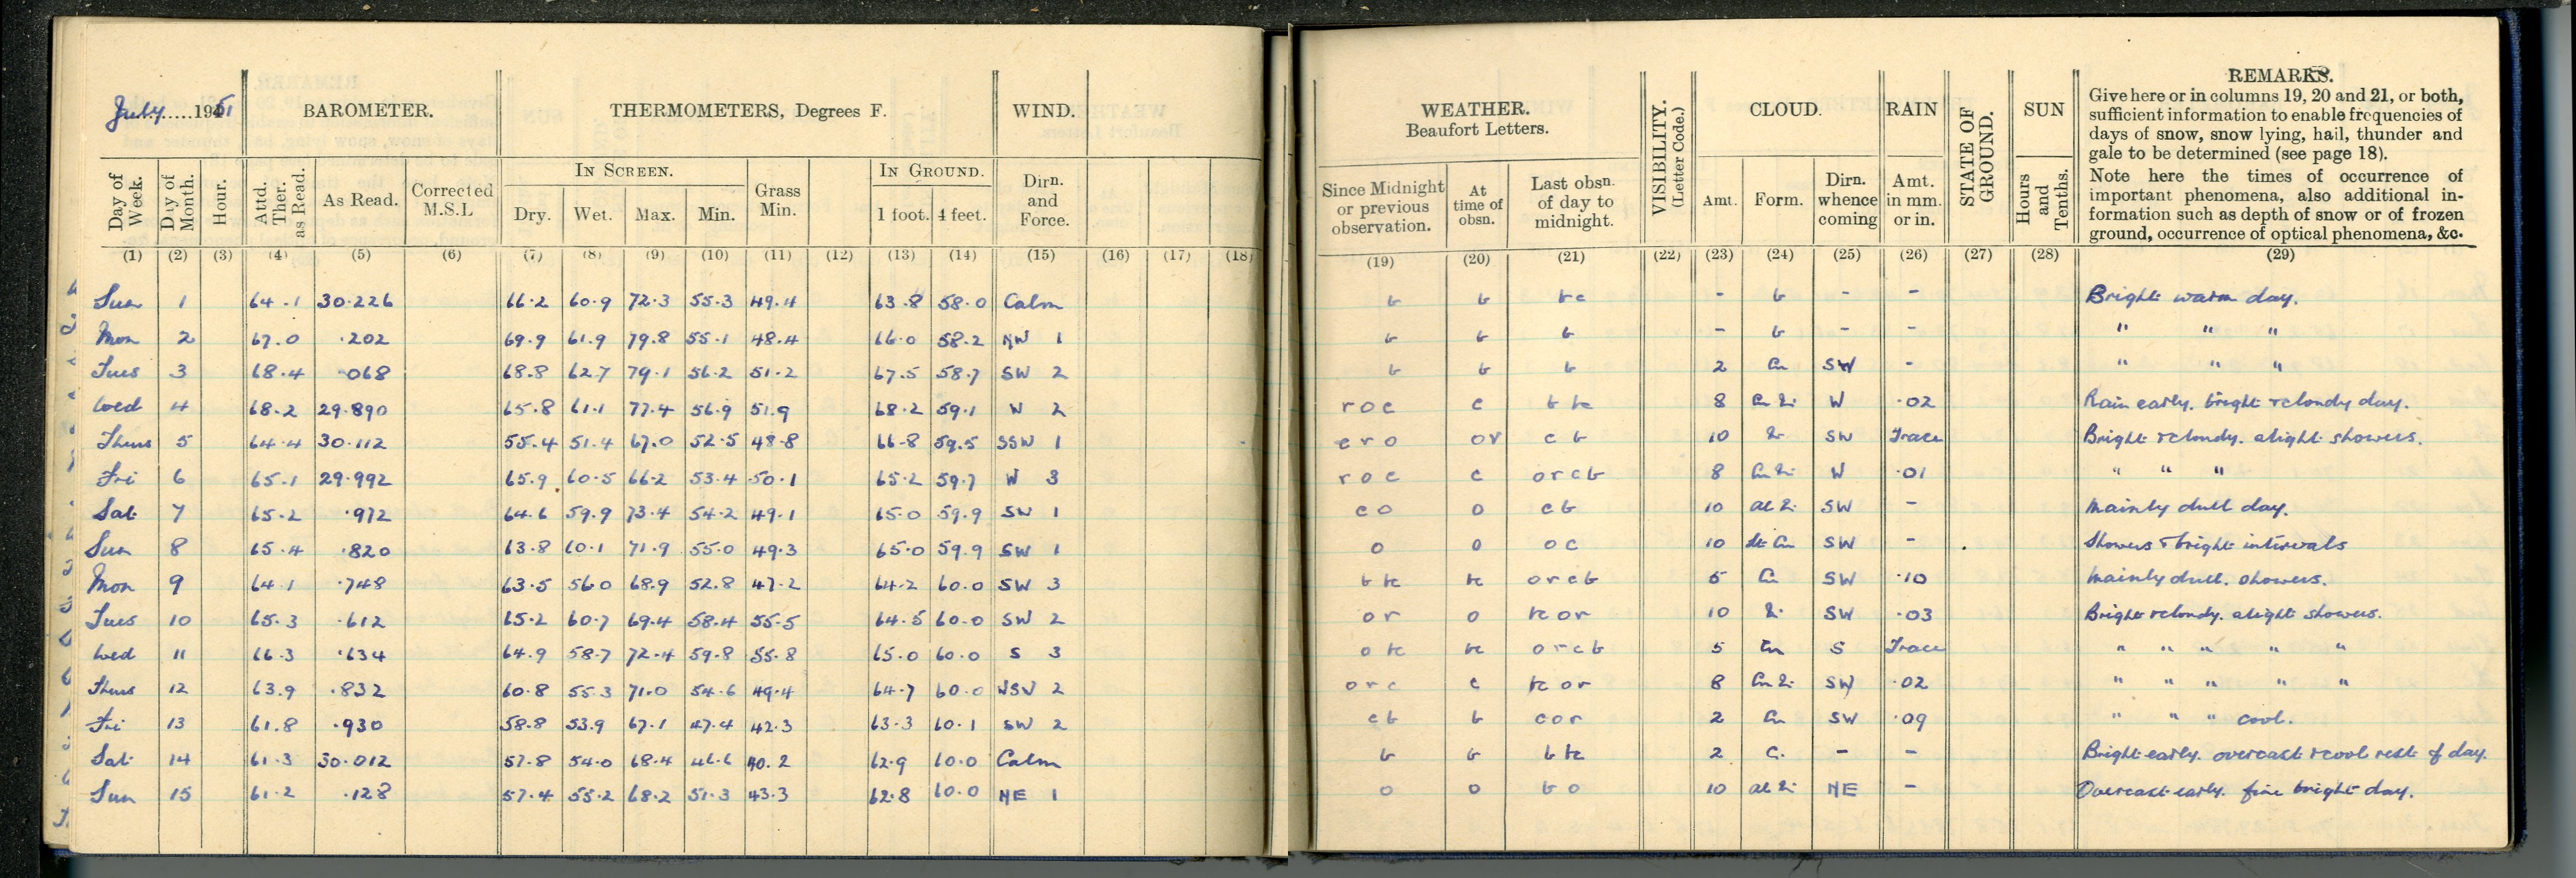 July.....1951 BAROMETER. THERMOMETERS, Degrees F. WIND.
IN SCREEN. IN GROUND.
Day of Week. Day of Month. Hour. Attd. Ther. as Read. As Read. Corrected M.S.L Dry. Wet. Max. Min. Grass Min. 1 foot. 4 feet. Dirn. and Force.
(1) (2) (3) (4) (5) (6) (7) (8) (9) (10) (11) (12) (13) (14) (15) (16) (17) (18)
Sun 1 64.1 30.226 66.2 60.9 72.3 55.3 49.4 63.8 58.0 Calm
Mon 2 67.0 .202 69.9 61.9 79.8 55.1 48.4 66.0 58.2 NW 1
Tues 3 68.4 .068 68.8 62.7 79.1 56.2 51.2 67.5 58.7 SW 2
Wed 4 68.2 29.890 65.8 61.1 77.4 56.9 51.9 68.2 59.1 W 2
Thurs 5 64.4 30.112 55.4 51.4 67.0 52.5 48.8 66.8 59.5 SSW 1
Fri 6 65.1 29.992 65.9 60.5 66.2 53.4 50.1 65.2 59.7 W 3
Sat 7 65.2 .972 64.6 59.9 73.4 54.2 49.1 65.0 59.9 SW 1
Sun 8 65.4 .820 63.8 60.1 71.9 55.0 49.3 65.0 59.9 SW 1
Mon 9 64.1 .748 63.5 56.0 68.9 52.8 47.2 64.2 60.0 SW 3
Tues 10 65.3 .612 65.2 60.7 69.4 58.4 55.5 64.5 60.0 SW 2
Wed 11 66.3 .634 64.9 58.7 72.4 59.8 55.8 65.0 60.0 S 3
Thurs 12 63.9 .832 60.8 55.3 71.0 54.6 49.4 64.7 60.0 WSW 2
Fri 13 61.8 .930 58.8 53.9 67.1 47.4 42.3 63.3 60.1 SW 2
Sat 14 61.3 30.012 57.8 54.0 68.4 46.6 40.2 62.9 60.0 Calm
Sun 15 61.2 .128 57.4 55.2 68.2 51.3 43.3 62.8 60.0 NE 1
WEATHER. Beaufort Letters. VISIBILITY. (Letter Code.) CLOUD. RAIN STATE OF GROUND. SUN REMARKS.
Give here or in columns 19, 20 and 21, or both,
sufficient information to enable frequencies of
days of snow, snow lying, hail, thunder and
gale to be determined (see page 18).
Note here the times of occurrence of
important phenomena, also additional in-
formation such as depth of snow or of frozen
ground, occurrence of optical phenomena, &c.
Since Midnight or previous observation. At time of obsn. Last obsn. of day to midnight. Amt. Form. Dirn. whence coming Amt. in mm. or in. Hours and Tenths.
(19) (20) (21) (22) (23) (24) (25) (26) (27) (28) (29)
b b bc - b - - Bright warm day.
b b b - b - - " " "
b b b 2 Cu SW - " " "
roc c b bc 8 W .02 Rain early. bright & cloudy day.
cro or c b 10 SW Trace Bright & cloudy. slight showers.
roc c orcb 8 W .01 " " "
co o cb 10 SW - Mainly dull day.
o o oc 10 St Cu SW - Showers & bright intervals
b bc bc orcb 5 Cu SW .10 Mainly dull. showers.
or o bc or 10 SW .03 Bright & cloudy. slight showers.
o bc bc orcb 5 Cu S Trace " " " " "
orc c bc or 8 SW .02 " " " " "
cb b cor 2 Cu SW .09 " " " cool.
b b b bc 2 C. - - Bright early. overcast & cool rest of day.
o o bo 10 NE - Overcast early. fine bright day.